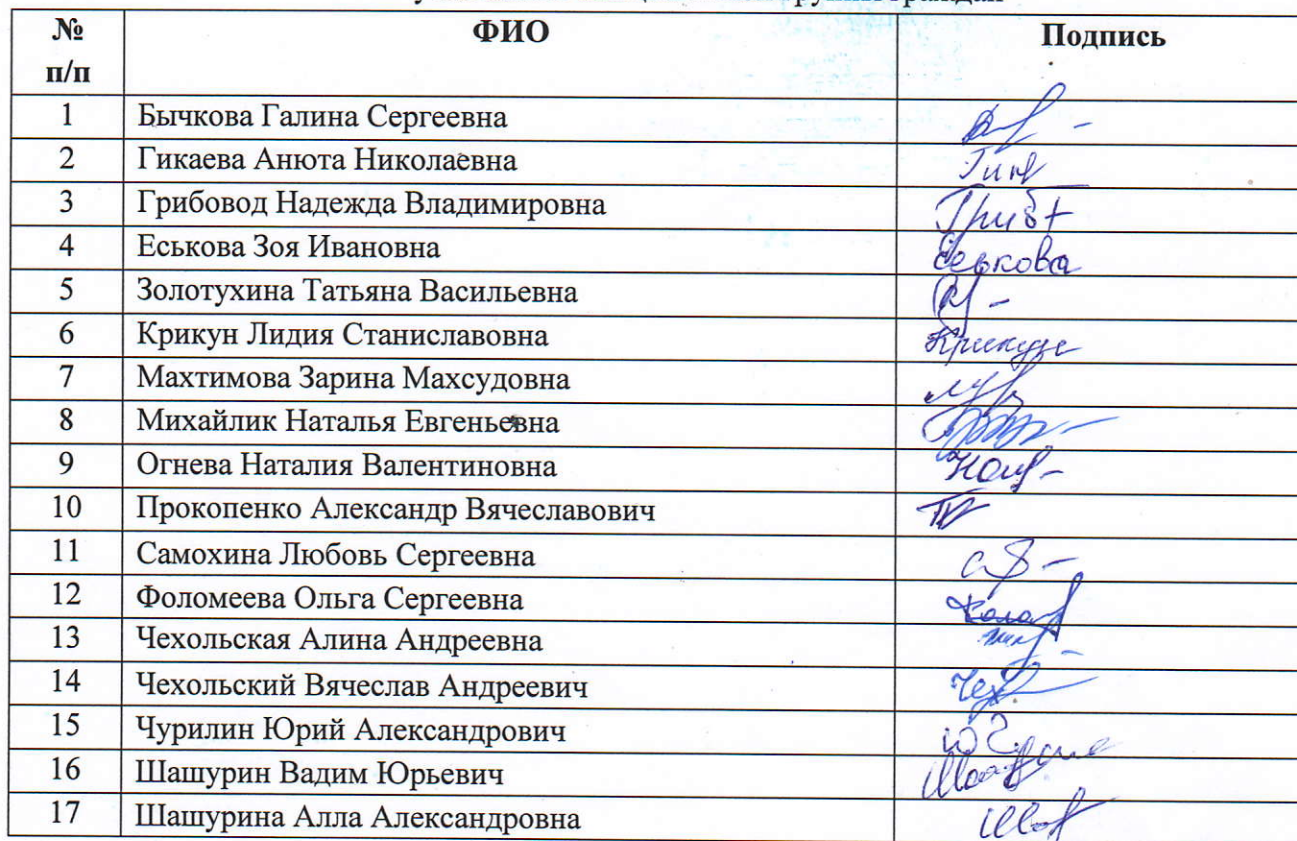 граждан
№ п/п ФИО Подпись
1 Бычкова Галина Сергеевна
2 Гикаева Анюта Николаевна
3 Грибовод Надежда Владимировна
4 Еськова Зоя Ивановна Еськова
5 Золотухина Татьяна Васильевна
6 Крикун Лидия Станиславовна Крикун
7 Махтимова Зарина Махсудовна
8 Михайлик Наталья Евгеньевна
9 Огнева Наталия Валентиновна
10 Прокопенко Александр Вячеславович
11 Самохина Любовь Сергеевна
12 Фоломеева Ольга Сергеевна
13 Чехольская Алина Андреевна
14 Чехольский Вячеслав Андреевич
15 Чурилин Юрий Александрович
16 Шашурин Вадим Юрьевич
17 Шашурина Алла Александровна